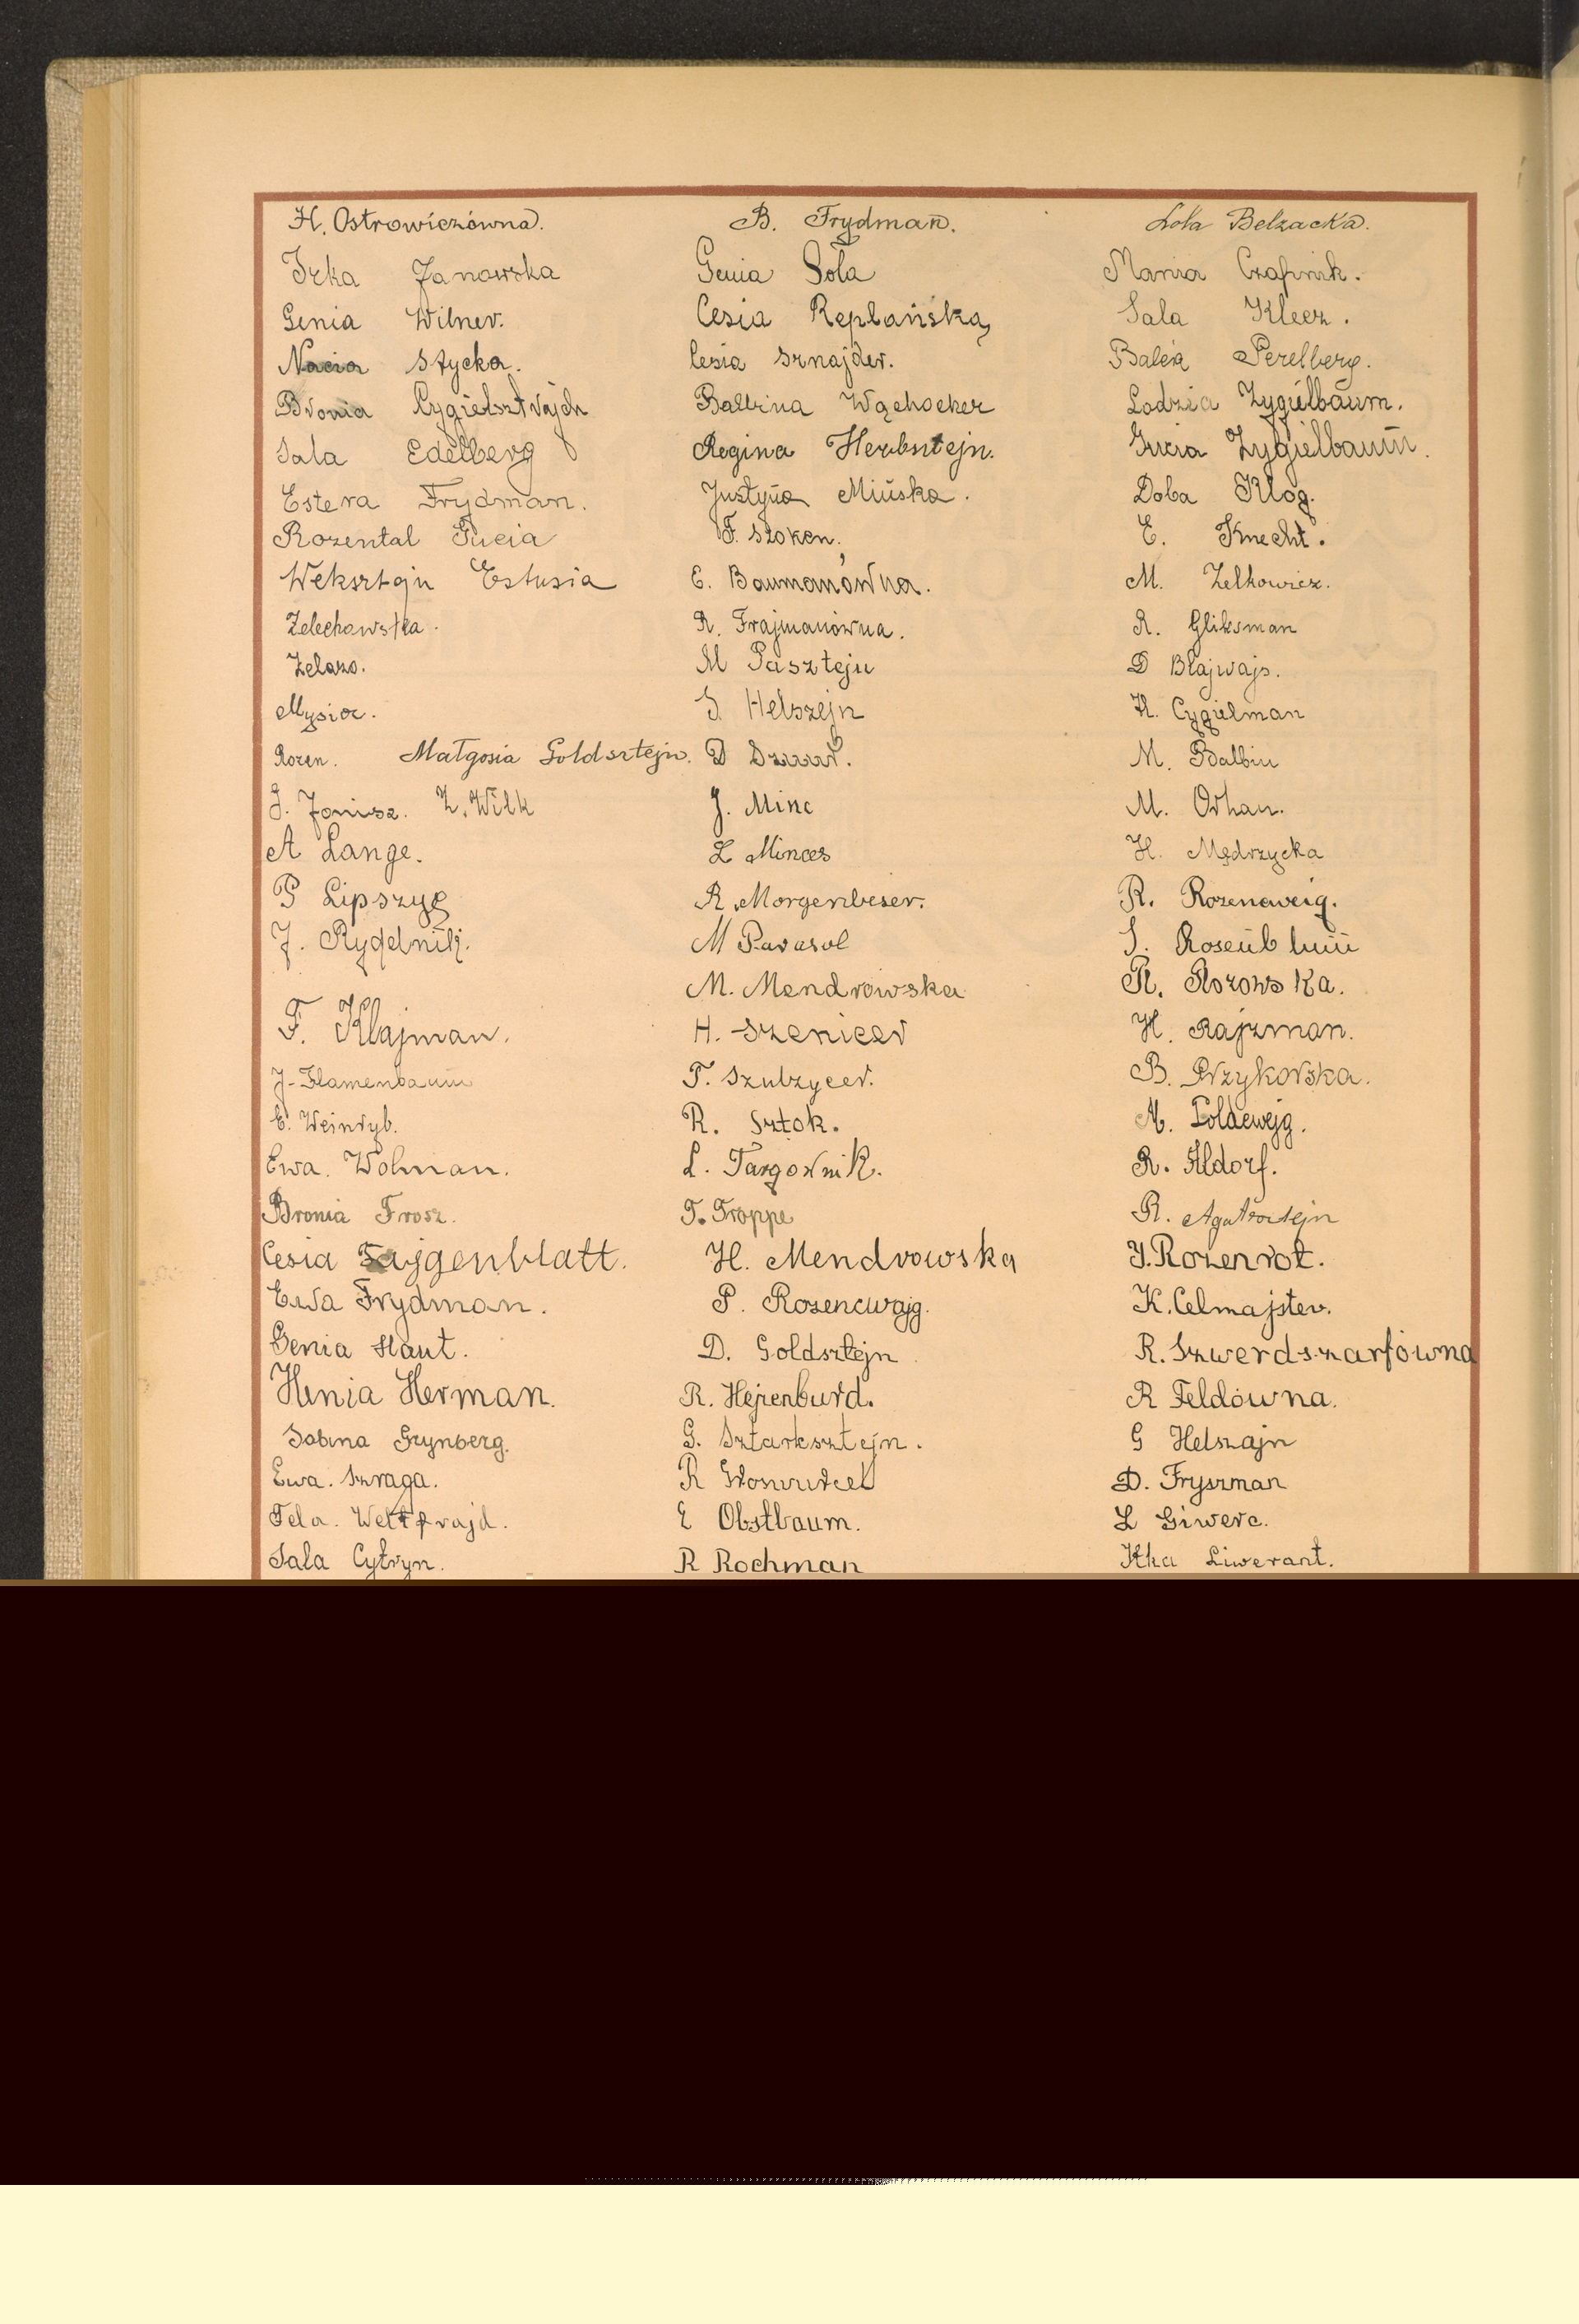 H. Ostrowiczówna. B. Frydman. Lola Belzacka.
Irka Janowska Genia Sola Mania Czapnik.
Genia Wilner. Cesia Replańska, Sala Klecz.
Nacia Stycka. Cesia Sznajder. Balcia Perelberg.
Bronia Cygielsztrajch Balbina Wąchocker Lodzia Zygielbaum.
Sala Edelberg Regina Herbsztejn. Gucia Zygielbaum.
Estera Frydman. Justyna Mińska. Doba Klog.
Rozental Fucia F. Sztoken. E. Knecht.
Weksztejn Estusia E. Baumanówna. M. Zelkowicz.
Zelechowska. R. Frajmanówna. R. Gliksman
Zelazo. M Pasztejn D Blajwajs.
Mysior. S. Helszejn H. Cygielman
Rozen. Małgosia Goldsztejn. D M. Balbin
J. Jonisz. Z. Wilk J. Minc M. Orhan.
A Lange. L Minces H. Mędrzycka
P Lipszyc R. Morgenbeser. R. Rozencweig.
J. Rygelnik. M Parasol S. Rosenblum
M. Mendrowska R. Rozowska.
F. Klajman. H. Szenicer H. Rajzman.
J. Flamenbaum T. Szulzycer. B. Przykorska.
E. Weinryb. R. Sztok. M. Goldcwejg.
Ewa. Wolman. L. Targownik. R. Aldorf.
Bronia Frosz. T. Troppe R. Agatsztejn
Cesia Fajgenblatt. H. Mendrowska J. Rozenrot.
Ewa Frydman. P. Rozencwajg. K. Celmajster.
Genia Haut. D. Goldsztejn R. Szwerdszarfówna
Henia Herman. R. Hejenburd. R Feldówna.
Sabina Grynberg. G. Sztarksztejn. G Helszajn
Ewa. Szraga. R D. Fryszman
Fela. Weltfrajd. E Obstbaum. L Giwerc.
Sala Cytryn. R Rochman Itka Liwerant.